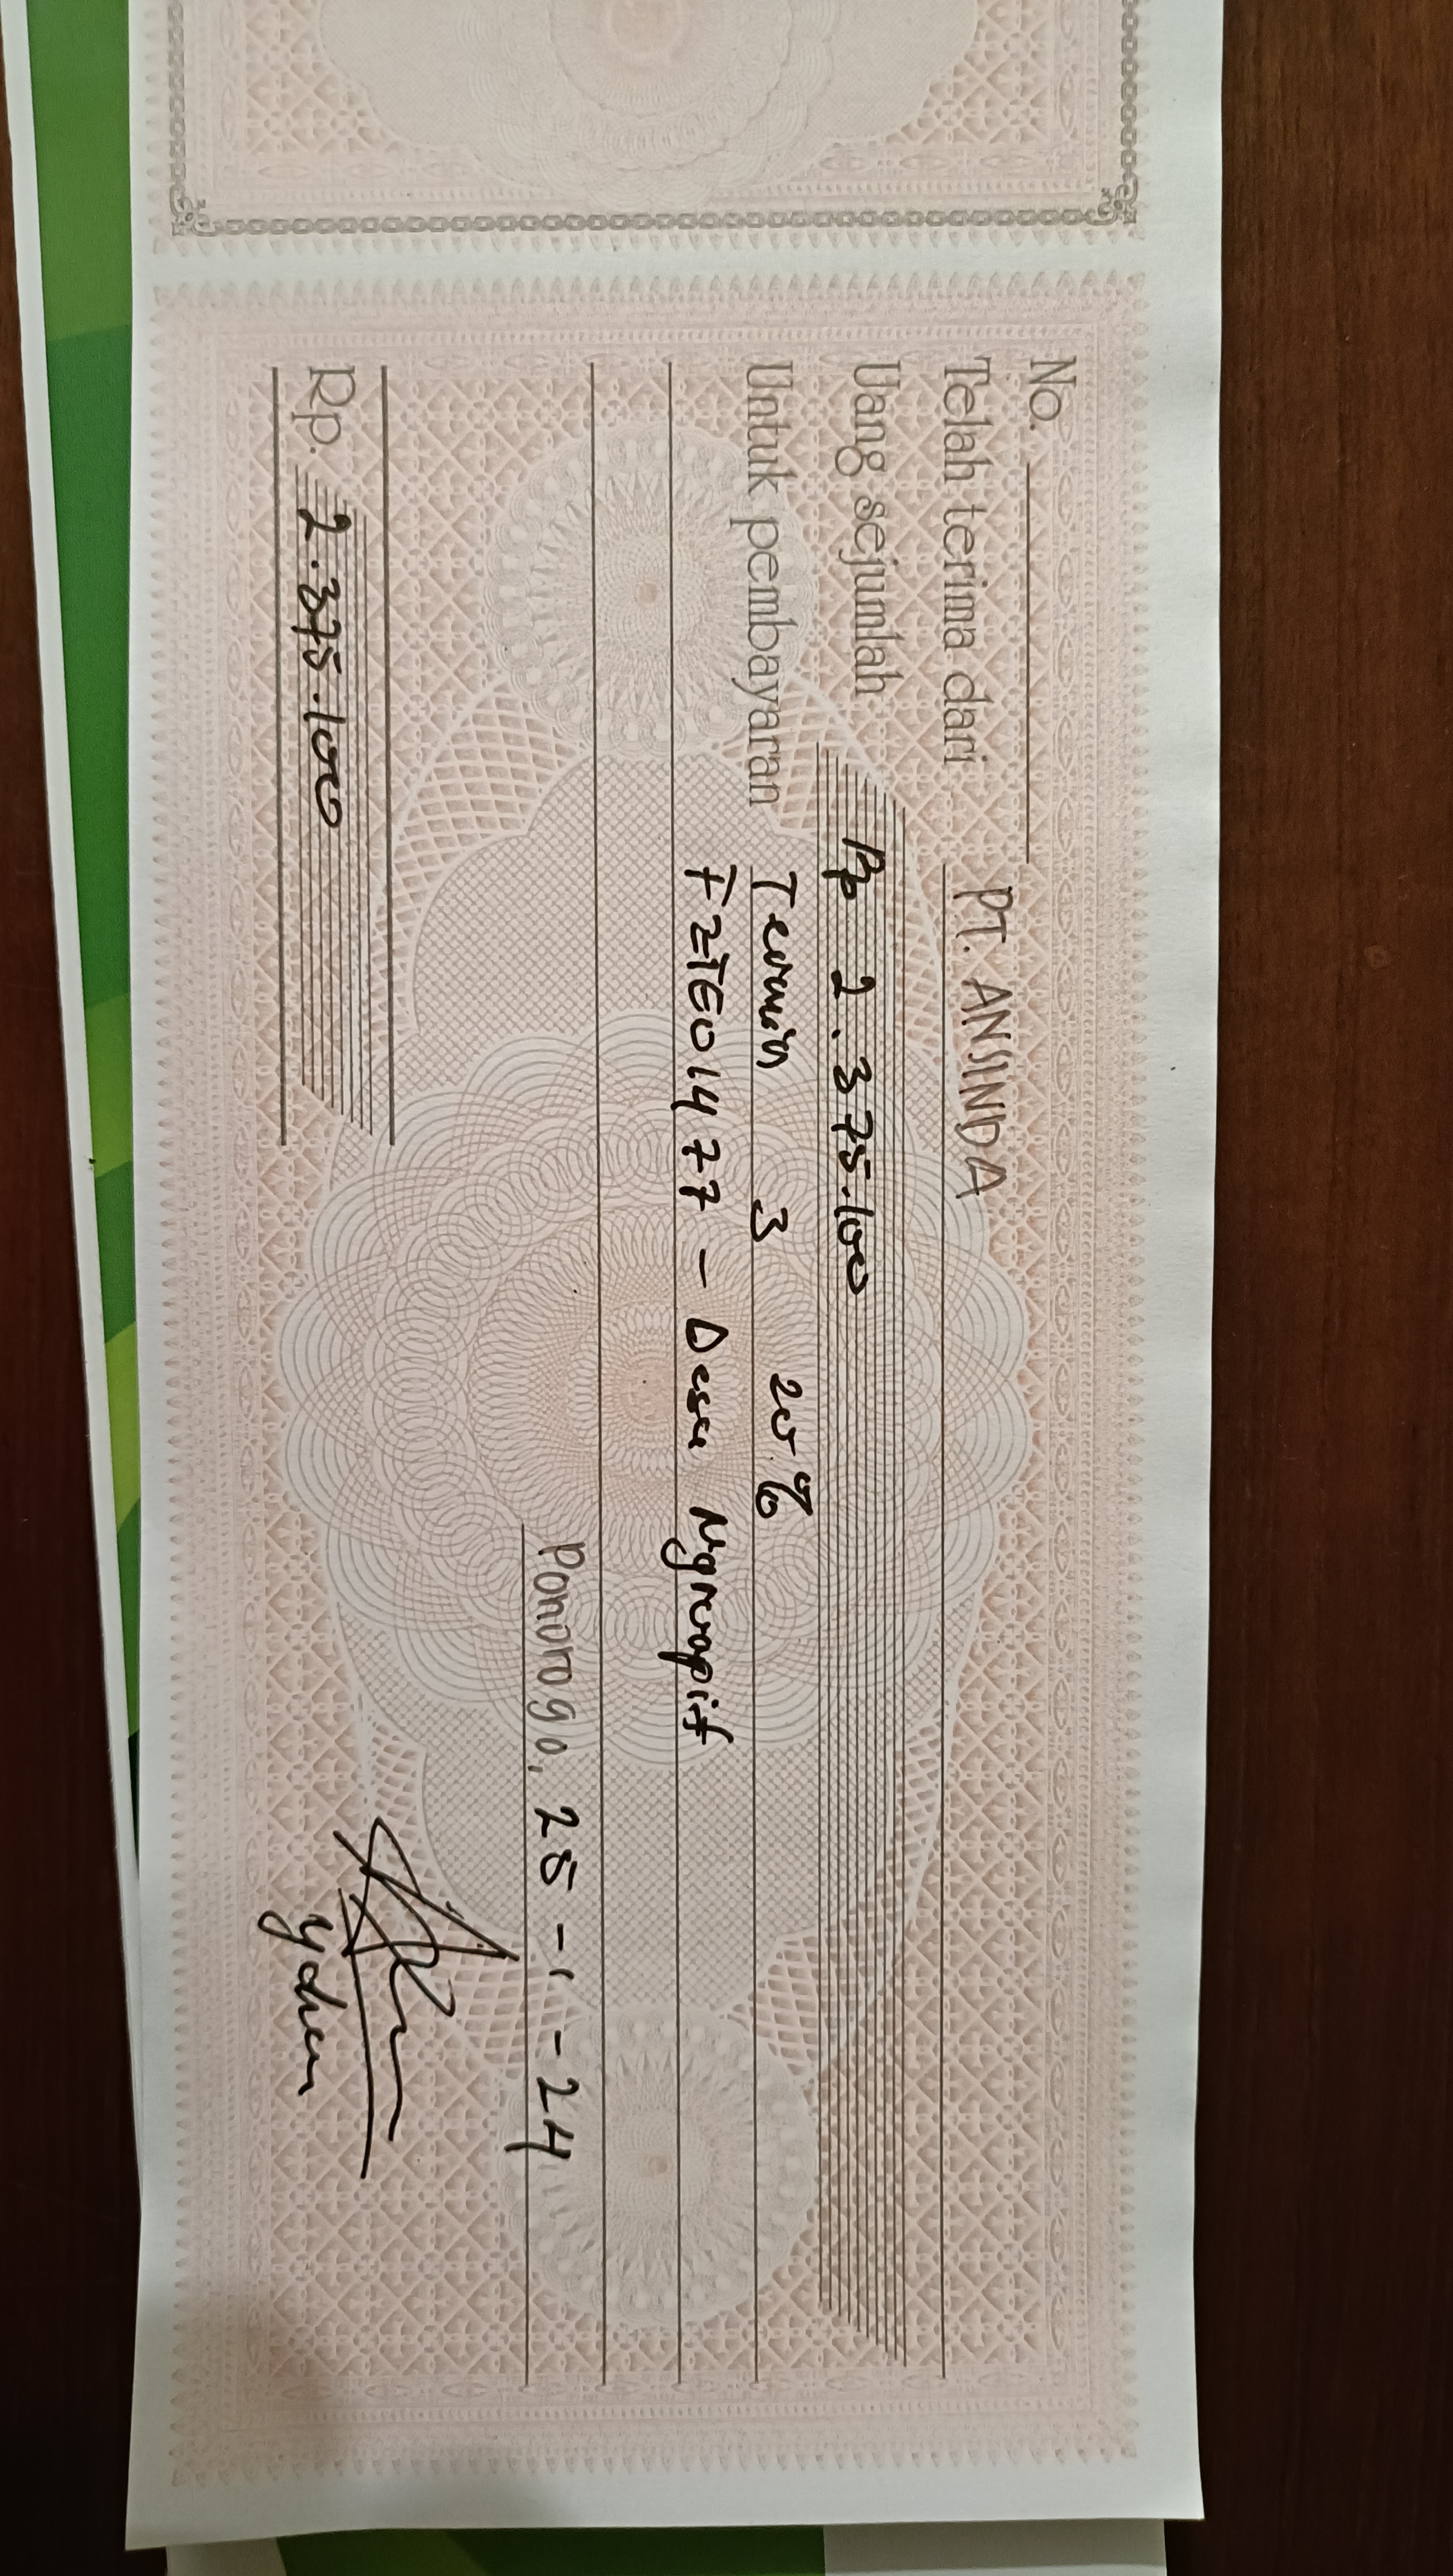 No.
Telah terima dari PT. ANSINDA
Uang sejumlah Rp 2.375.100
Untuk pembayaran Termin 3 20%
FZTE01477 - Desa Ngrupit
Ponorogo, 25-1-24
Rp. 2.375.100